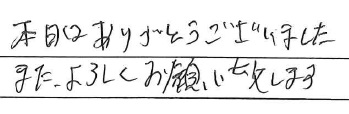 本日はありがとうございました
また、よろしくお願い致します